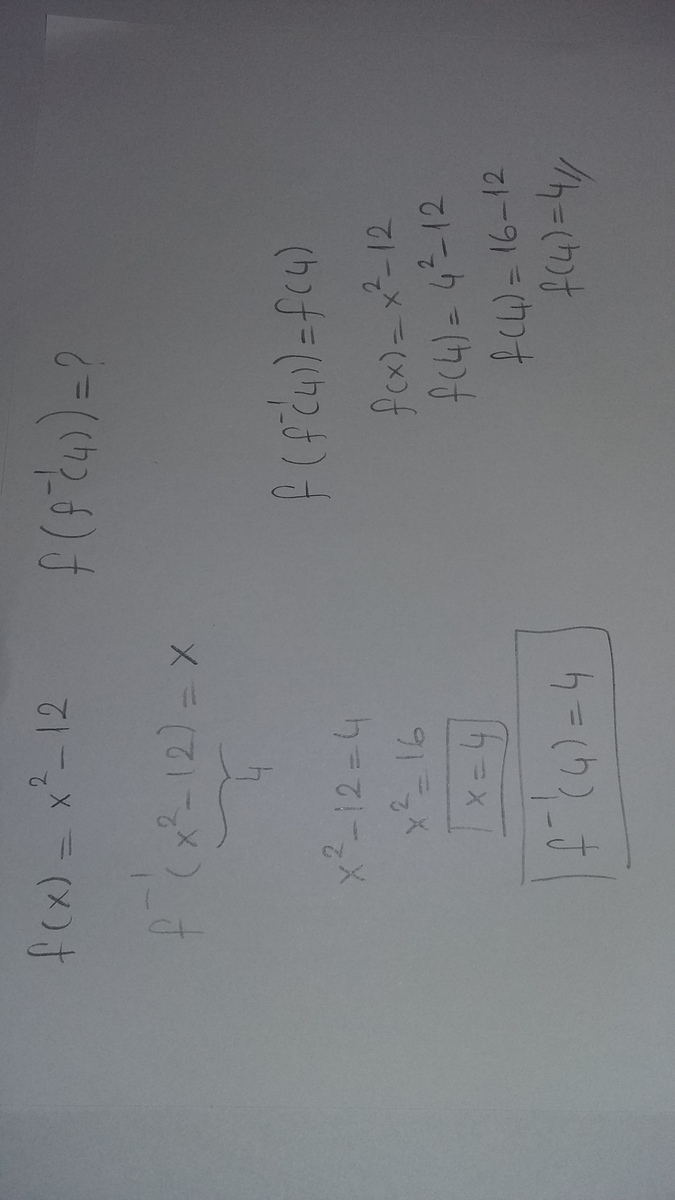 f(x) = x² - 12    f(f⁻¹(4)) = ?
f⁻¹(x² - 12) = x
4
x² - 12 = 4
x² = 16
x = 4
f⁻¹(4) = 4
f(f⁻¹(4)) = f(4)
f(x) = x² - 12
f(4) = 4² - 12
f(4) = 16 - 12
f(4) = 4//